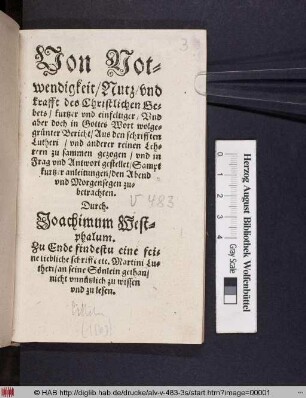 Von Not-
wendigkeit / Nutz / vnd
krafft des Christlichen Ge-
bets / kurtzer vnd einfeltiger / Vnd
aber doch in Gottes Wort wolge-
grünter Bericht / Aus den schrifften
Lutheri / vnd anderer reinen Leh-
rern zu sammen gezogen / vnd in
Frag vnd Antwort gestellet / Sampt
kurtzer anleitungen / den Abend
vnd Morgensegen zu-
betrachten.
V 483
Durch.
Joachimum West-
phalum.
Zu Ende findestu eine fei-
ne liebliche schrifft etc. Martini Lu-
theri / an seine Sönlein gethan /
nicht vnnützlich zu wissen
vnd zu lesen.
Herzog August Bibliothek Wolfenbüttel
Gray Scale
© HAB http://diglib.hab.de/drucke/alv-v-483-3s/start.htm?image=00001